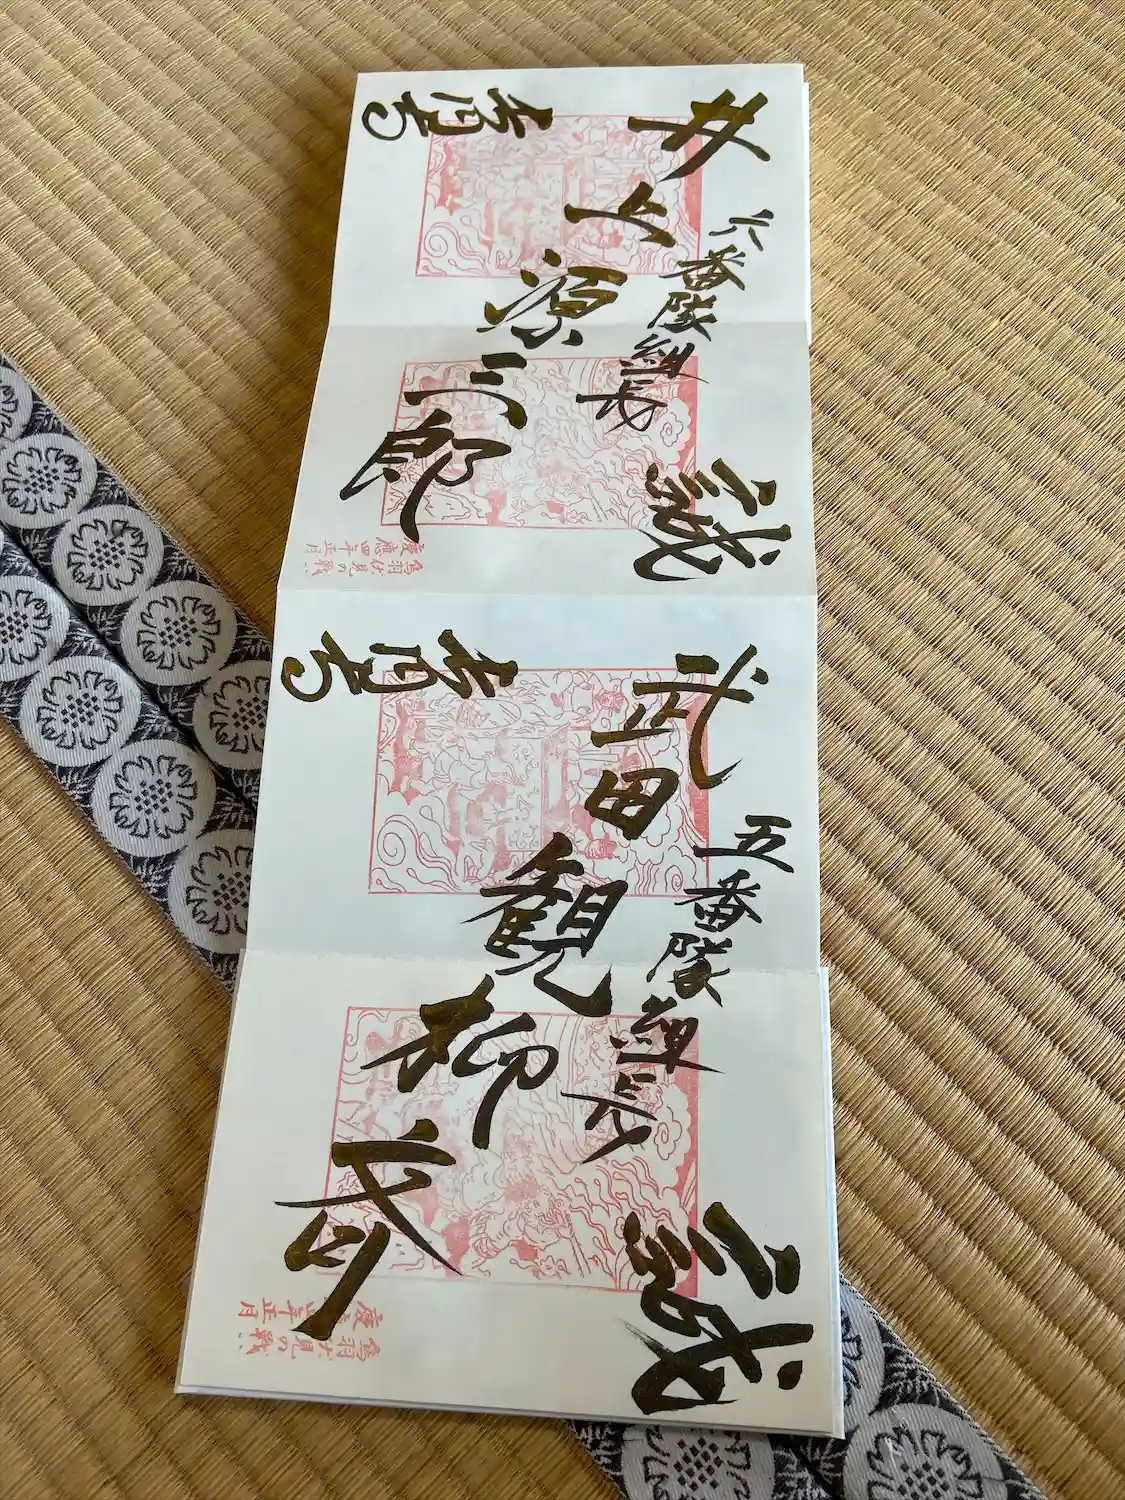 六番隊組長
井上源三郎
誠
慶應四年正月
鳥羽伏見の戦い
五番隊組長
武田観柳斎
誠
慶應四年正月
鳥羽伏見の戦い